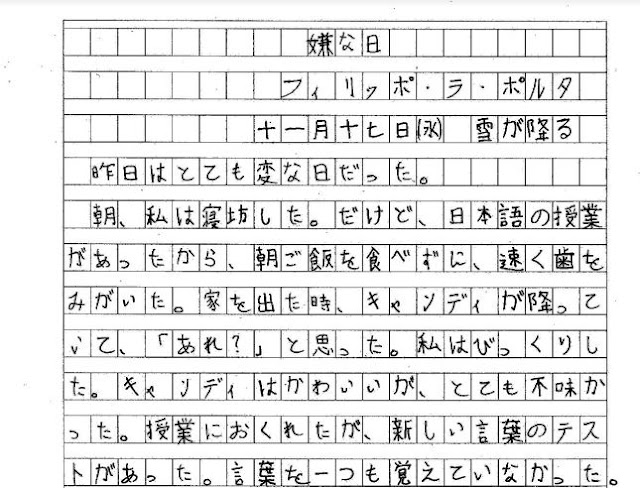 嫌な日
フィリッポ・ラ・ポルタ
十一月十七日(水) 雪が降る
昨日はとても変な日だった。
朝、私は寝坊した。だけど、日本語の授業
があったから、朝ご飯を食べずに、速く歯を
みがいた。家を出た時、キャンディが降って
いて、「あれ?」と思った。私はびっくりし
た。キャンディはかわいいが、とても不味か
った。授業におくれたが、新しい言葉のテス
トがあった。言葉を一つも覚えていなかった。